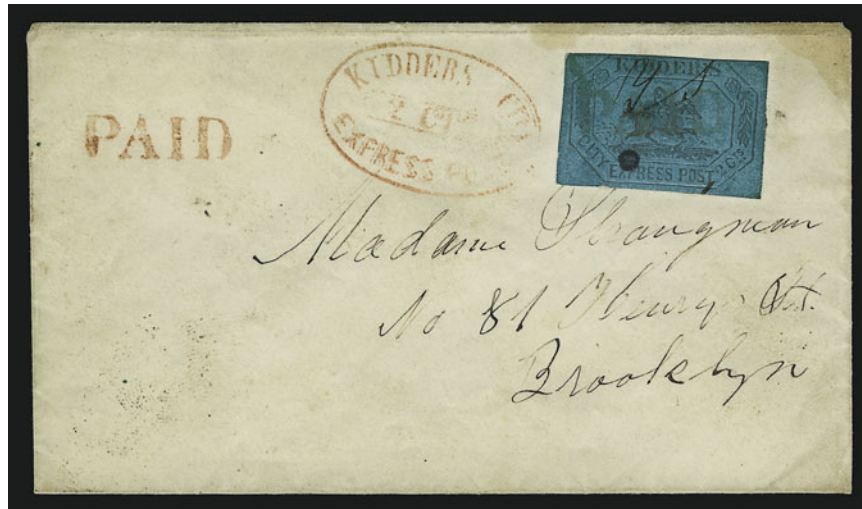 PAID
KIDDERS CITY
2 CTS
EXPRESS
KIDDER'S
CITY EXPRESS POST 2 Cts
Madame Strangman
No 81 Henry St.
Brooklyn